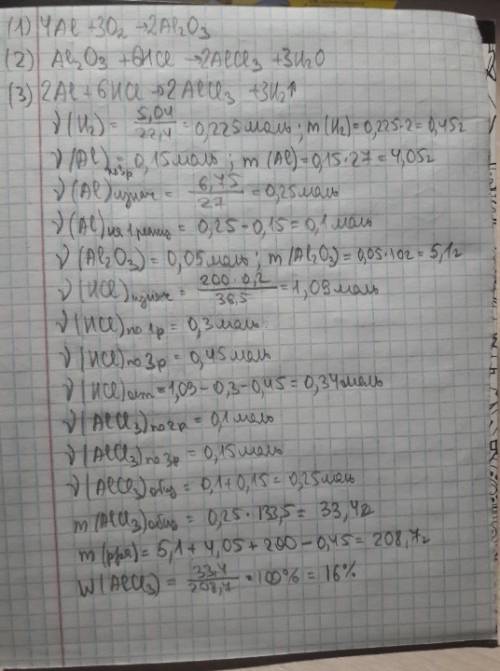 (1) 4Al + 3O₂ → 2Al₂O₃
(2) Al₂O₃ + 6HCl → 2AlCl₃ + 3H₂O
(3) 2Al + 6HCl → 2AlCl₃ + 3H₂↑
ν(H₂) = 5,04/22,4 = 0,225 моль ; m(H₂) = 0,225·2 = 0,45г
ν(Al)по 3р = 0,15 моль ; m(Al) = 0,15·27 = 4,05г
ν(Al)изнач = 6,75/27 = 0,25 моль
ν(Al) 1 = 0,25 - 0,15 = 0,1 моль
ν(Al₂O₃) = 0,05 моль ; m(Al₂O₃) = 0,05·102 = 5,1г
ν(HCl)изнач = 200·0,2/36,5 = 1,09 моль
ν(HCl)по 1р = 0,3 моль
ν(HCl)по 3р = 0,45 моль
ν(HCl)ост = 1,09 - 0,3 - 0,45 = 0,34 моль
ν(AlCl₃)по 2р = 0,1 моль
ν(AlCl₃)по 3р = 0,15 моль
ν(AlCl₃)общ = 0,1 + 0,15 = 0,25 моль
m(AlCl₃)общ = 0,25·133,5 = 33,4г
m(рра) = 5,1 + 4,05 + 200 - 0,45 = 208,7г
W(AlCl₃) = 33,4/208,7 · 100% = 16%